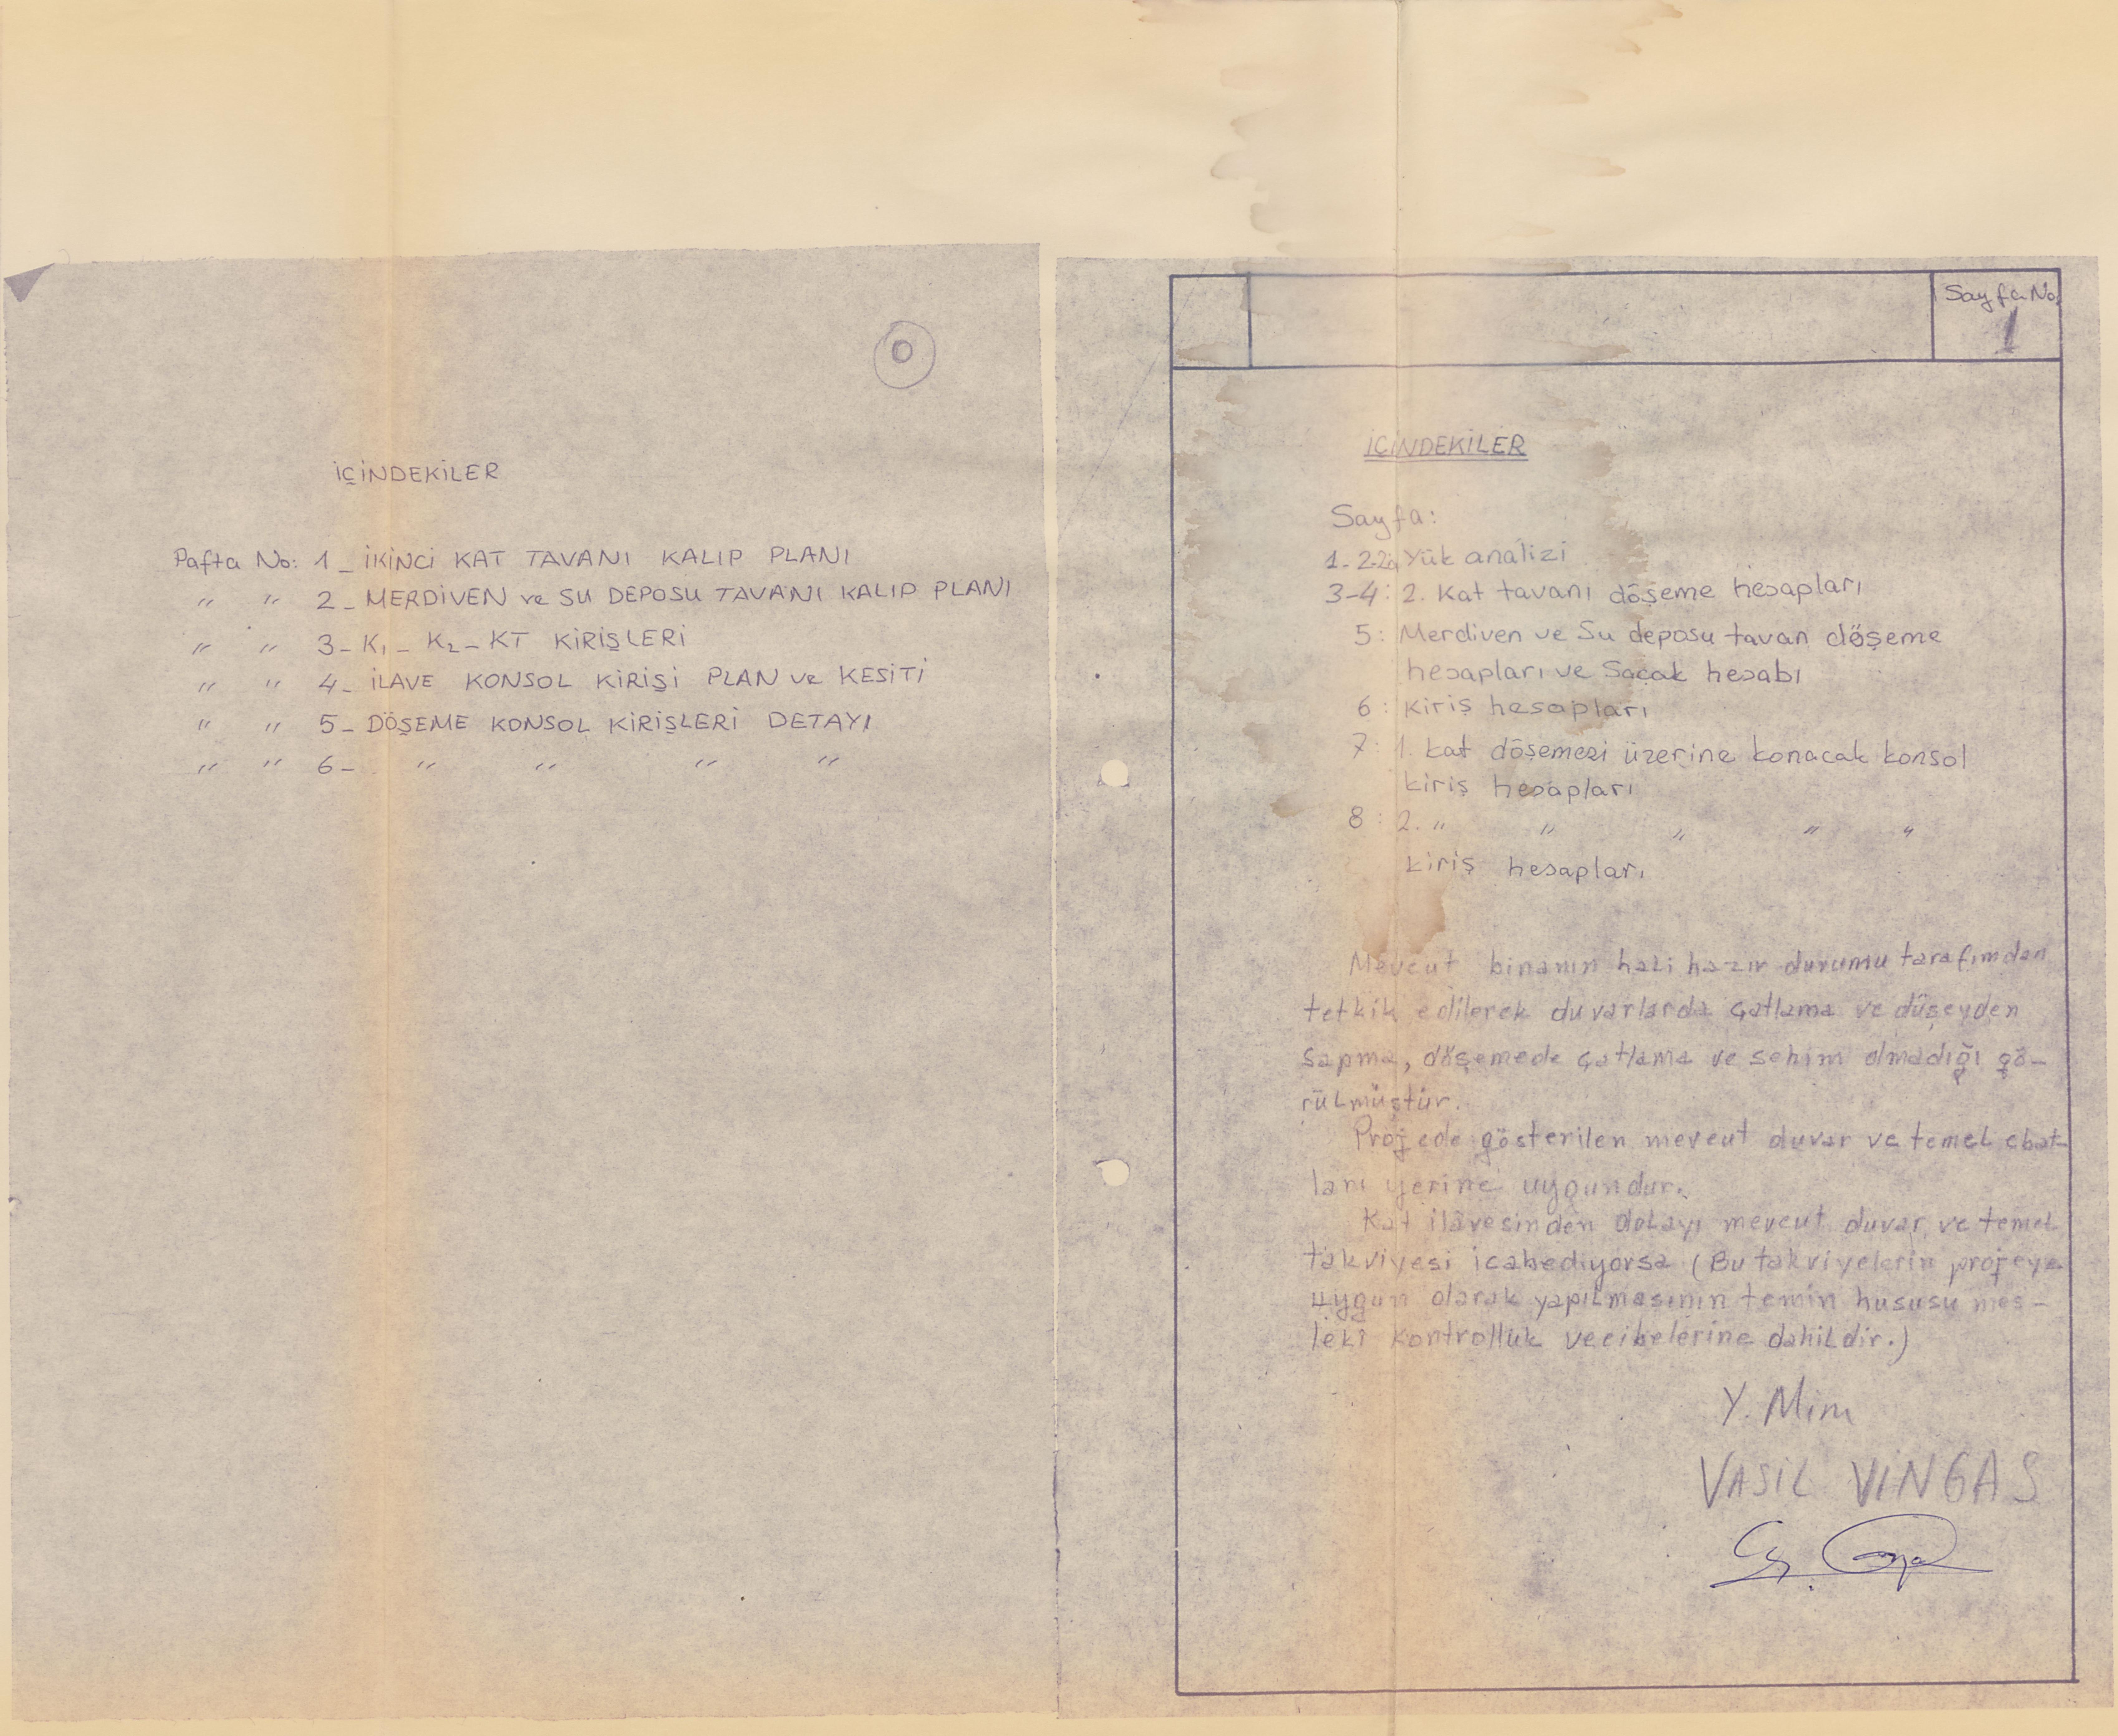 0
İÇİNDEKİLER
Pafta No: 1 _ İKİNCİ KAT TAVANI KALIP PLANI
" " 2 _ MERDİVEN ve SU DEPOSU TAVANI KALIP PLANI
" " 3 _ K1 _ K2 _ KT KİRİŞLERİ
" " 4 _ İLAVE KONSOL KİRİŞİ PLAN ve KESİTİ
" " 5 _ DÖŞEME KONSOL KİRİŞLERİ DETAYI
" " 6 _ " " " "
Sayfa No.
1
İÇİNDEKİLER
Sayfa:
1-2-2a Yük analizi
3-4: 2. Kat tavanı döşeme hesapları
5: Merdiven ve Su deposu tavan döşeme
hesapları ve Saçak hesabı
6: Kiriş hesapları
7: 1. kat döşemesi üzerine konacak konsol
kiriş hesapları
8: 2. " " " " "
kiriş hesapları
Mevcut binanın hali hazır durumu tarafımdan
tetkik edilerek duvarlarda çatlama ve düşeyden
sapma, döşemede çatlama ve sehim olmadığı gö-
rülmüştür.
Projede gösterilen mevcut duvar ve temel ebat
ları yerine uygundur.
Kat ilâvesinden dolayı mevcut duvar ve temel
takviyesi icabediyorsa (Bu takviyelerin projeye
uygun olarak yapılmasının temin hususu mes-
leki kontrollük vecibelerine dahildir.)
Y. Mim
VASİL VİNGAS